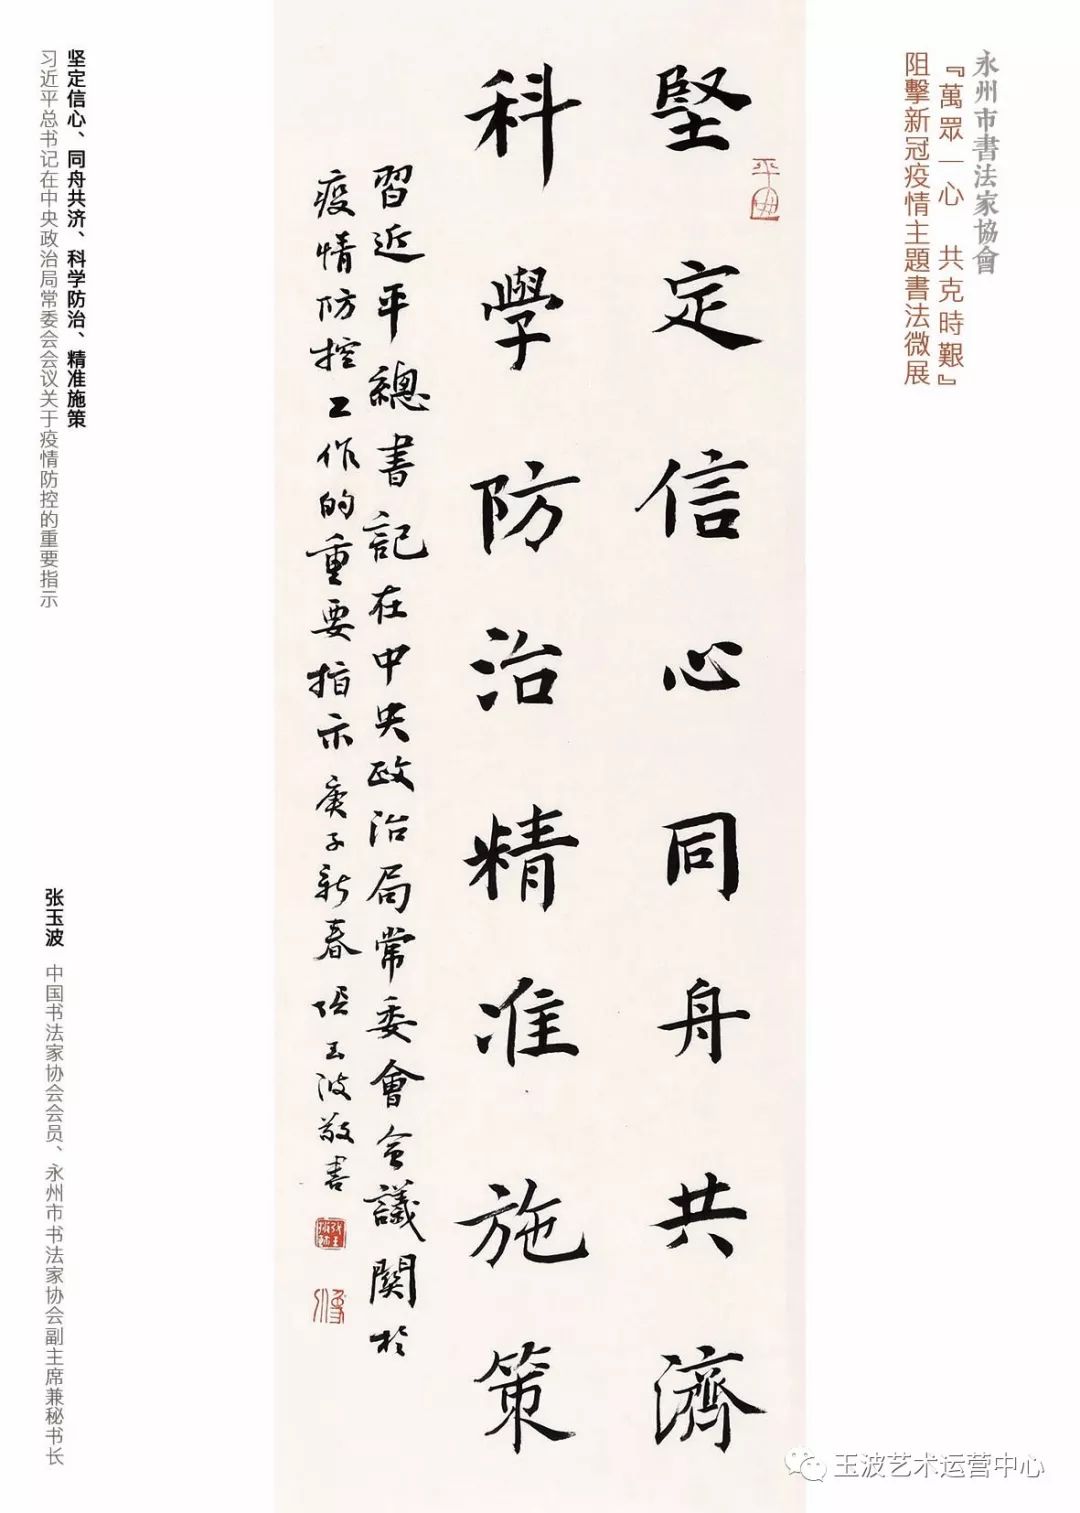 永州市書法家協會
『萬眾一心 共克時艱』
阻擊新冠疫情主題書法微展
堅定信心同舟共濟
科學防治精准施策
習近平總書記在中央政治局常委會會議關於
疫情防控工作的重要指示庚子新春張玉波敬書
坚定信心、同舟共济、科学防治、精准施策
习近平总书记在中央政治局常委会会议关于疫情防控的重要指示
张玉波 中国书法家协会会员、永州市书法家协会副主席兼秘书长
玉波艺术运营中心